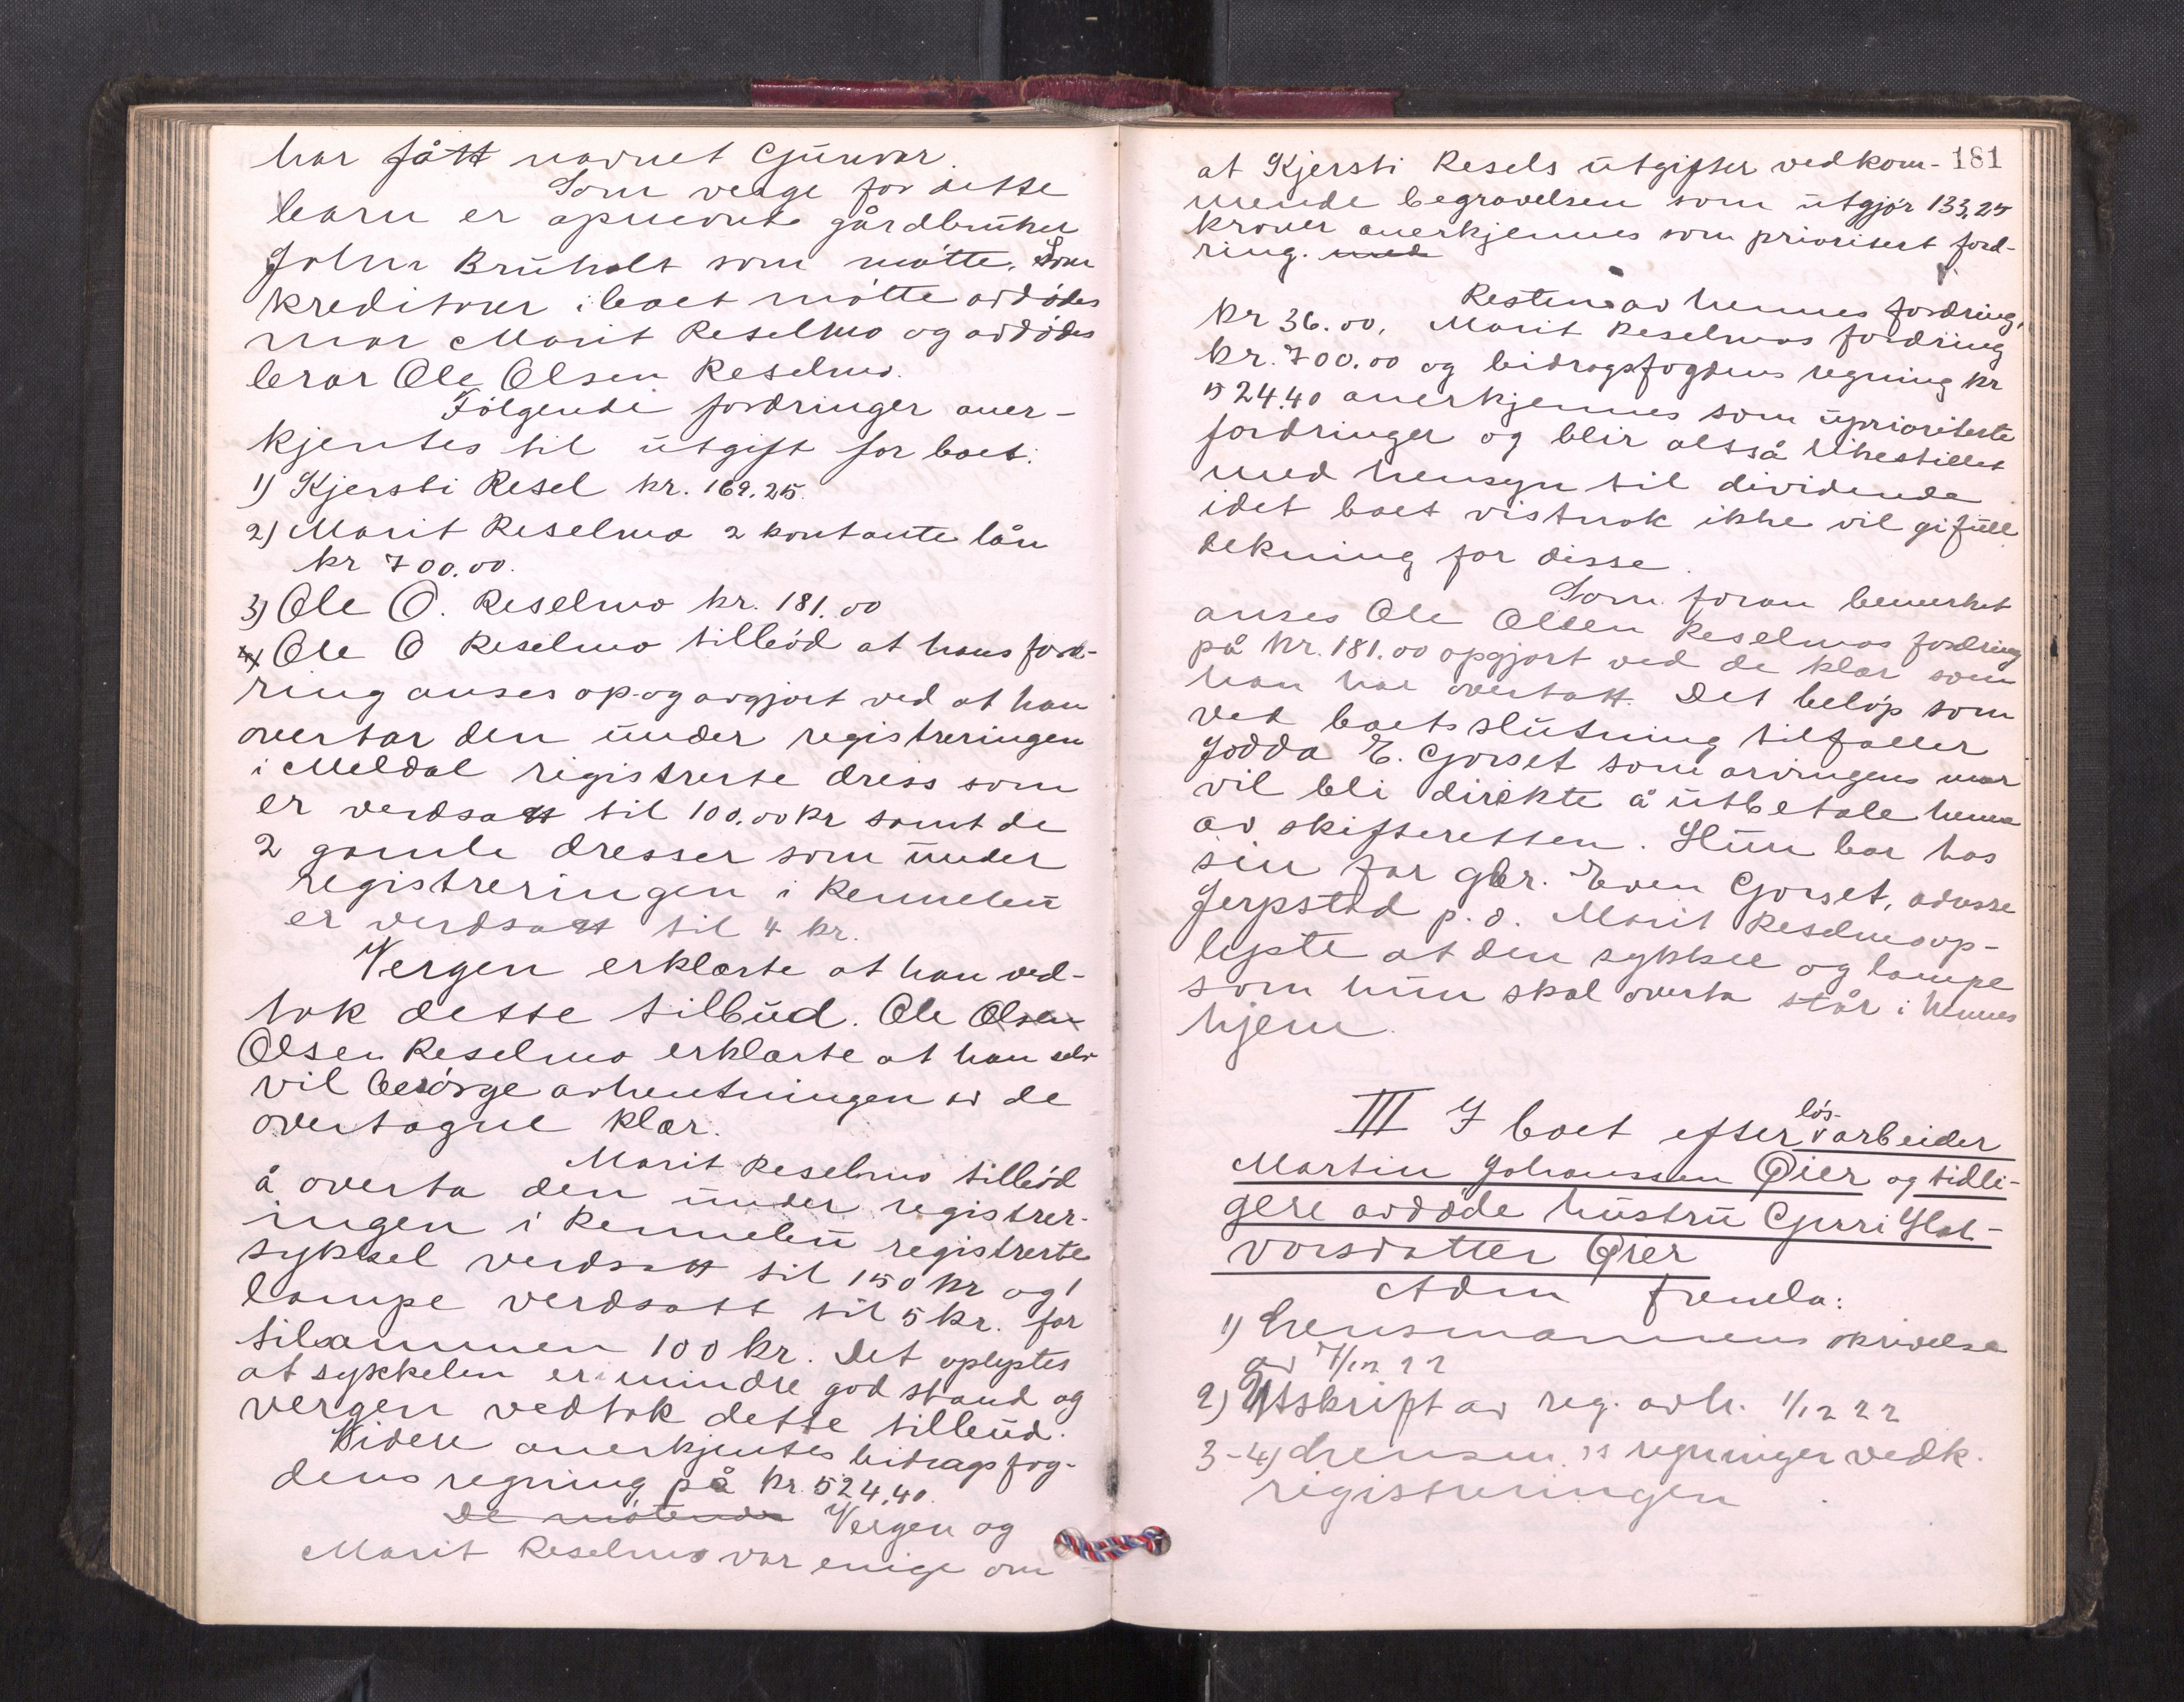 har fått navnet Gunvor.
Som verge for dette
barn er opnevnt gårdbruker
John Bruholt som møtte. Som
kreditorer i boet møtte avdødes
mor Marit Reselmo og avdødes
bror Ole Olsen Reselmo.
Følgende fordringer aner-
kjentes til utgift for boet:
1) Kjersti Resel kr. 169.25.
2) Marit Reselmo 2 kontante lån
kr 700.00.
3) Ole O. Reselmo kr. 181.00
4) Ole O Reselmo tilbød at hans ford-
ring anses op-og avgjort ved at han
overtar den under registreringen
i Meldal registrerte dress som
er verdsatt til 100.00 kr samt de
2 gamle dresser som under
registreringen i Rennebu
er verdsatt til 4 kr.
Vergen erklærte at han ved-
tok dette tilbud. Ole Olsen
Olsen Reselmo erklærte at han selv
vil besørge avhentningen av de
overtagne klær.
Marit Reselmo tilbød
å overta den under registrer-
ingen i Rennebu registrerte
sykkel verdsatt til 150 kr og 1
lampe verdsatt til 5 kr. for
tilsammen 100 kr. Det oplystes
at sykkelen er i mindre god stand og
vergen vedtok dette tilbud.
Videre anerkjentes bidragsfog-
dens regning på kr. 524.40.
De møtende Vergen og
Marit Reselmo var enige om
181
at Kjersti Resels utgifter vedkom-
mende begravelsen som utgjør 133,25
kroner anerkjennes som prioritert ford-
ring. med
Resten av hennes fordring,
kr 36.00, Marit Reselmos fordring
kr. 700.00 og bidragsfogdens regning kr
524.40 anerkjennes som uprioriterte
fordringer og blir altså likestillet
med hensyn til dividende
idet boet vistnok ikke vil gi full
dekning for disse.
Som foran bemerket
anses Ole Olsen Reselmos fordring
på kr. 181.00 opgjort ved de klær som
han har overtatt. Det beløp som
ved boets slutning tilfaller
Jodda E. Gorset som arvingens mor
vil bli direkte å utbetale henne
av skifteretten. Hun bor hos
sin far gbr. Even Gorset, adresse
Jerpstad p.å. Marit Reselmo op-
lyste at den sykkel og lampe
som hun skal overta står i hennes
hjem.
III I boet efter løs-
arbeider
Martin Johanssen Øier og tidli-
gere avdøde hustru Gurri Hal-
vorsdatter Øier
Adm fremla:
1) Lensmannens skrivelse
av 7/12 22
2) Utskrift av reg. avh. 1/12 22
3-4) Lensm. 2s regninger vedk.
registreringen